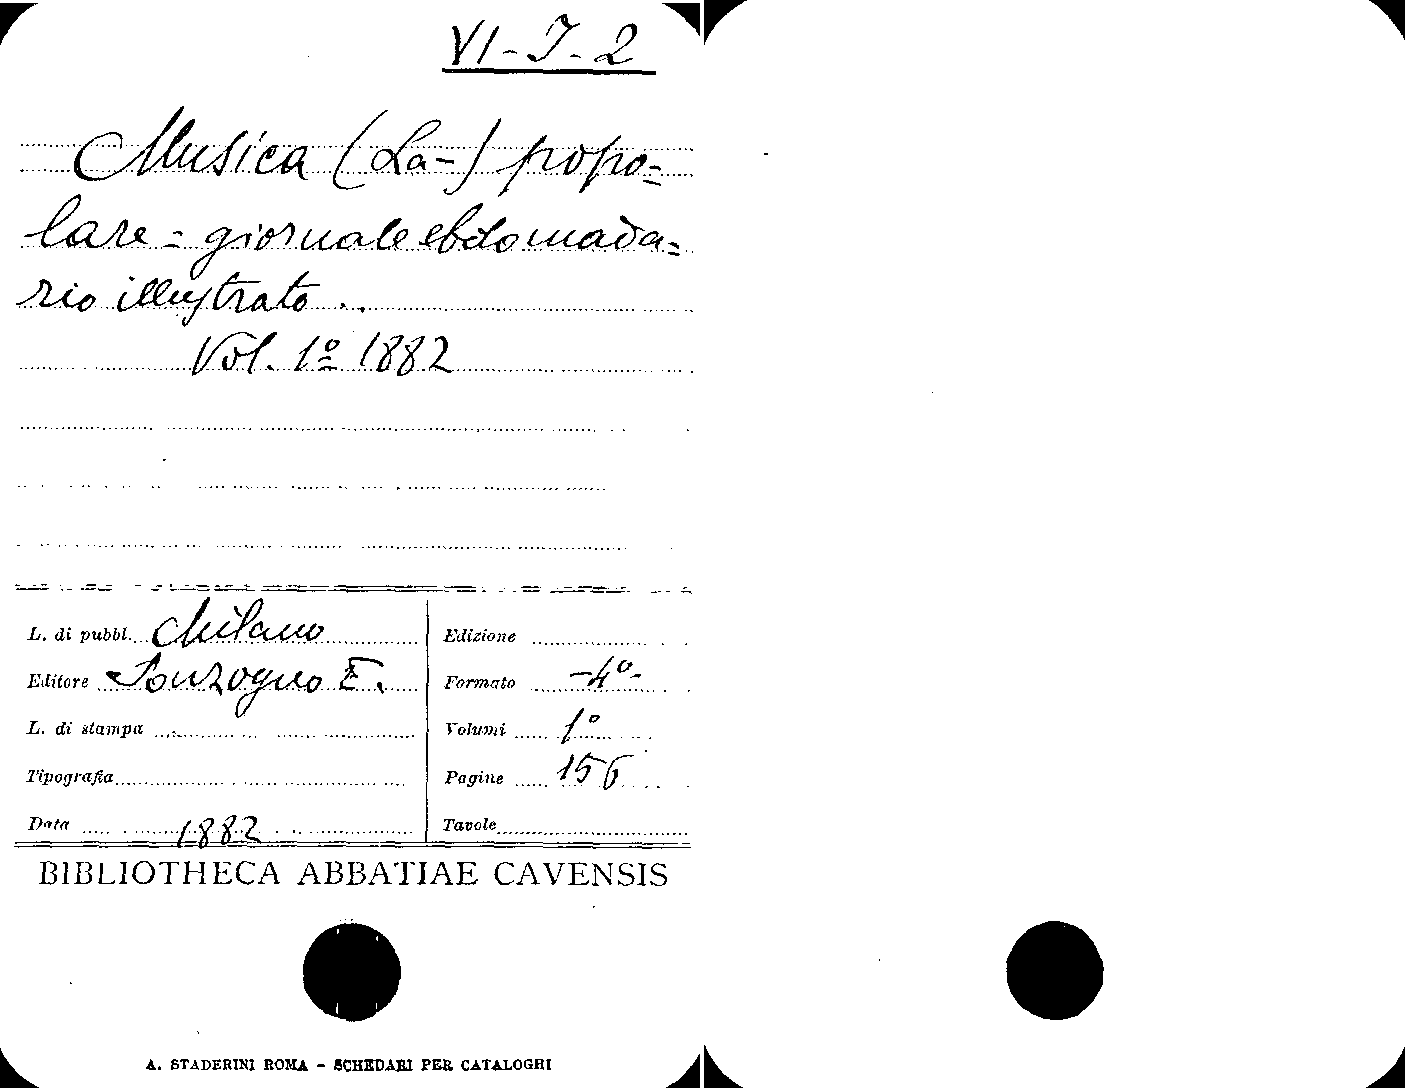 VI-J-2
Musica (La-) popo-
lare - giornale ebdomada-
rio illustrato..
Vol. 1º 1882
L. di pubbl. Milano
Editore Sonzogno E.
L. di stampa
Tipografia
Data 1882
Edizione
Formato -4º-
Volumi 1º
Pagine 156
Tavole
BIBLIOTHECA ABBATIAE CAVENSIS
A. STADERINI ROMA - SCHEDARI PER CATALOGHI